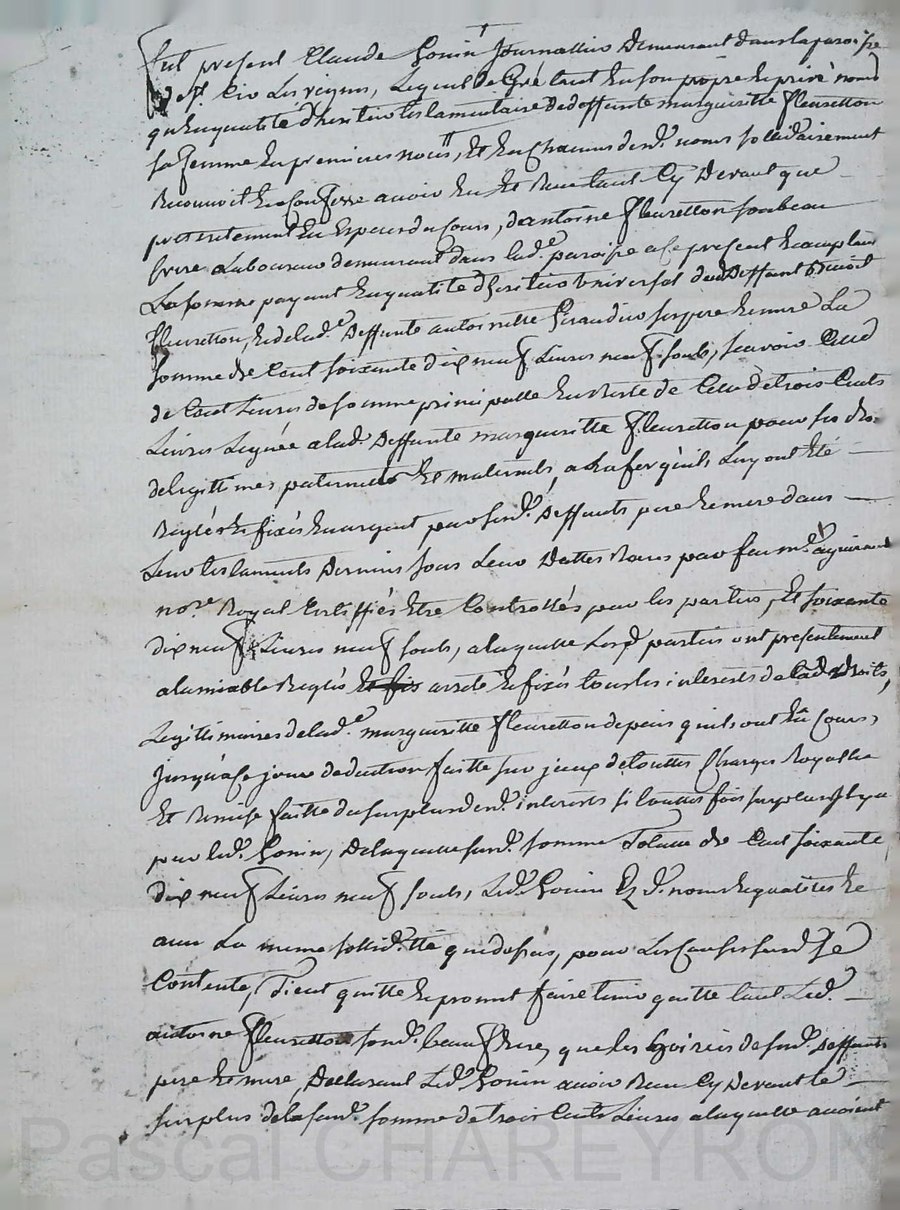 fut present Claude Gonin Journallier Demeurant dans la paroisse
de St. Cir Les vignes, Lequel de Gré tant En son propre et privé nom
qu'En qualité d'heritier testamentaire de deffunte margueritte fleuretton
sa femme En premieres noces, Et En Chacun desd. noms sollidairement
Reconnoit Et Confesse avoir Eu Et Receu tant Cy Devant que
presentement En Especes du Cours, d'antoine fleuretton son beau
frere Laboureur demeurant dans lad.e paroisse a ce present Et acceptant
La somme payant En qualité d'heritier universel dud Deffunt Benoit
fleuretton, Et de lad.e Deffunte antoinette Giraud ses pere Et mere La
somme de Cent soixante dix neuf Livres neuf sous, scavoir Celle
de Cent Livres de somme principalle En Reste de Celle de trois Cents
Livres Leguée a lad. Deffunte margueritte fleuretton pour ses dro.
de legittimes paternels Et maternels, a La fer qu'ils Luy ont Eté
Reglés Et fixés En argent par sesd. Deffunts pere Et mere dans
Leur testaments Derniers sous Leur Dattes Receus par feu m.e
no.re Royal Certiffiés Etre Controllés par les parties, Et soixante
dix neuf Livres neuf sous, a laquelle Lesd parties ont presentement
a lamiable Reglés Et fix arreté Et fixés tous les interests de lad Droits,
Legittimaires de lad.e margueritte fleuretton depuis qu'ils ont Eû Cours,
Jusqu'a ce jour deduction faitte sur jceux de touttes Charges Royalles
Et Remise faitte du surplus desd. interests si touttes fois surplus Jl y a
par led. Gonin, De laquelle susd. somme Totalle de Cent soixante
dix neuf Livres neuf sous, Led. Gonin Esd. noms Et qualités Et
avec La meme sollid.tté que dessus, pour Les Causes susd. se
Contente, Tient quitte Et promet faire tenir quitte tant Led.
antoine fleuretton sond. beau frere, que les hoiries de sesd. Deffunts
pere Et mere, Declarant Led. Gonin avoir Receu Cy Devant le
surplus de la susd. somme de trois Cents Livres a laquelle avoient
Pascal CHAREYRON